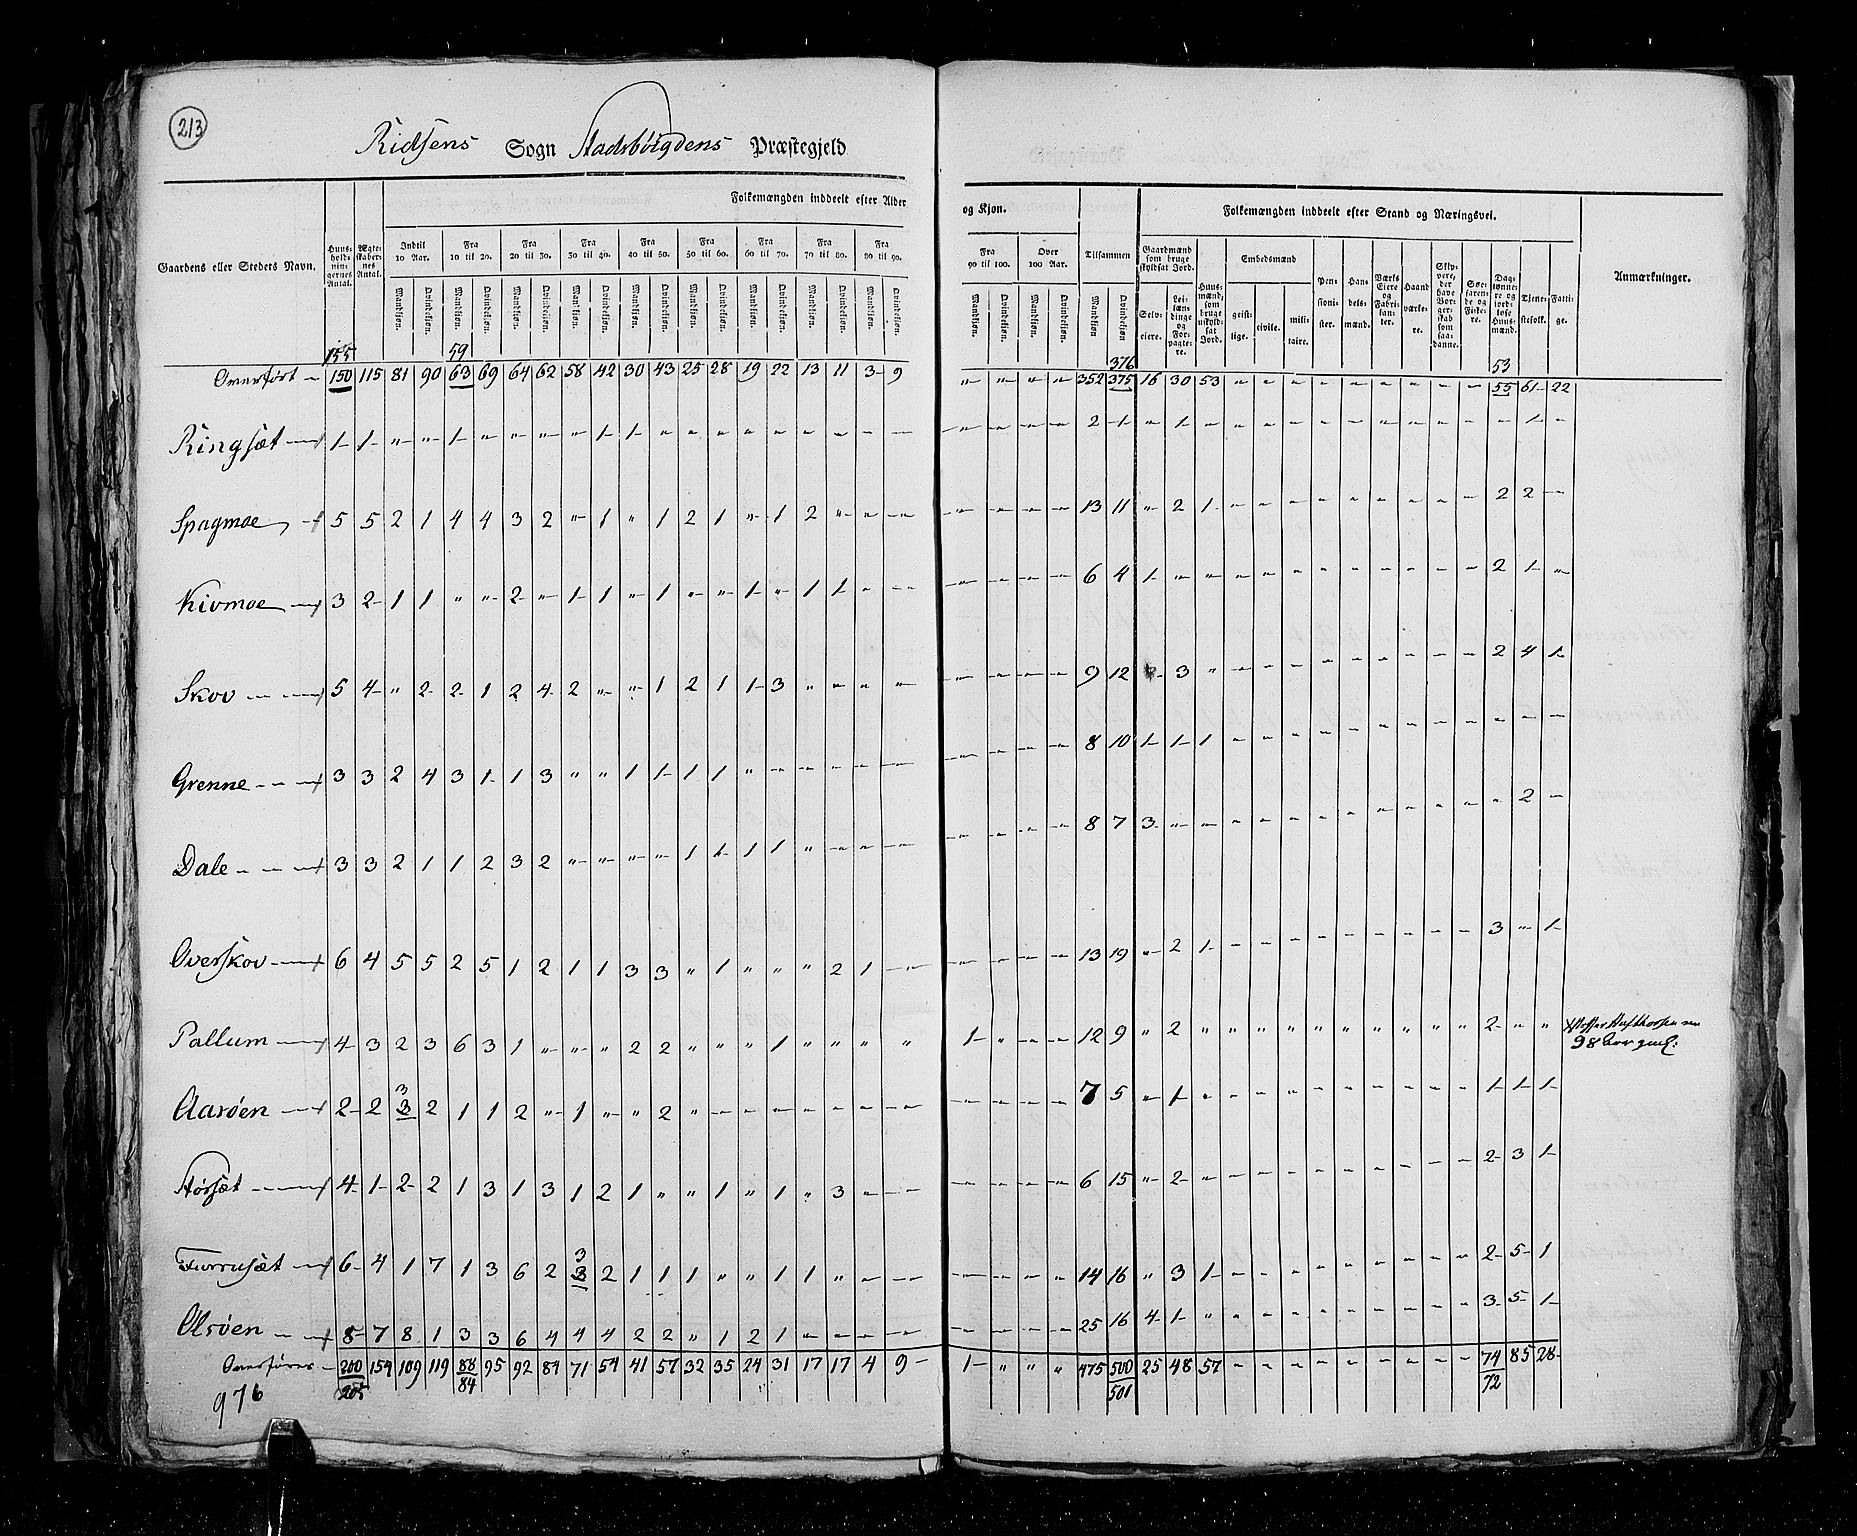 213
Ridsens Sogn Stadsbøigdens Præstegjeld
Folkemængden inddeelt efter Alder og Kjøn. Folkemængden inddeelt efter Stand og Næringsvei.
Gaardens eller Stedets Navn. Huus-holdnin-gernes Antal. Ægte-skaber-nes Antal. Indtil 10 Aar. Fra 10 til 20. Fra 20 til 30. Fra 30 til 40. Fra 40 til 50. Fra 50 til 60. Fra 60 til 70. Fra 70 til 80. Fra 80 til 90. Fra 90 til 100. Over 100 Aar. Tilsammen Gaardmænd som bruge skyldsat Jord. Huus-mænd, som bruge uskyld-sat Jord. Embedsmænd Pen-sioni-ster. Han-dels-mænd. Værks Eiere og Fabri-kanter. Haand værke-re. Skip-pere, der have Bor-ger-skab som saa-danne. Søe-farende og Fiske-re. Dag-lønne-re og jord-løse Huus-mænd. Tjene-stefolk. Fatti-ge. Anmærkninger.
Mandkjøn. Qvindekjøn. Mandkjøn. Qvindekjøn. Mandkjøn. Qvindekjøn. Mandkjøn. Qvindekjøn. Mandkjøn. Qvindekjøn. Mandkjøn. Qvindekjøn. Mandkjøn. Qvindekjøn. Mandkjøn. Qvindekjøn. Mandkjøn. Qvindekjøn. Mandkjøn. Qvindekjøn. Mandkjøn. Qvindekjøn. Mandkjøn Qvindekjøn Selv-eiere. Lei-læn-dinge og For-pagte-re. geist-lige. civile. mili-taire.
155 59 376 53
Overført 150 115 81 90 63 69 64 62 58 42 30 43 25 28 19 22 13 11 3 9 " " " " 352 375 16 30 53 " " " " " " " " " 55 61 22
Ringsæt 1 1 " " 1 " " " " 1 1 " " " " " " " " " " " " " 2 1 " 1 " " " " " " " " " " " 1 "
Spagmoe 5 5 2 1 4 4 3 2 " 1 " 1 2 1 " 1 2 " " " " " " " 13 11 " 2 1 " " " " " " " " " 2 2 "
Kivmoe 3 2 1 1 " " 2 " 1 1 " 1 " " 1 " 1 1 " " " " " " 6 4 1 " " " " " " " " " " " 2 1 "
Skov 5 4 " 2 2 1 2 4 2 " " 1 2 1 1 3 " " " " " " " " 9 12 " 3 " " " " " " " " " " 2 4 1
Grenne 3 3 2 4 3 1 1 3 " " 1 1 1 1 " " " " " " " " " " 8 10 1 1 1 " " " " " " " " " " " "
Dale 3 3 2 1 1 2 3 2 " " " " 1 1 1 1 " " " " " " " " 8 7 3 " " " " " " " " " " " " 2 "
Overskov 6 4 5 5 2 5 1 2 1 1 3 3 " 1 " " " 2 1 " " " " " 13 19 " 2 1 " " " " " " " " " 3 " 1
Pallum 4 3 2 3 6 3 1 " " " 2 2 " " " 1 " " " " 1 " " " 12 9 " 2 " " " " " " " " " " 2 " "
98 aar
3
Aarøen 2 2 3 2 1 1 2 " 1 " " 2 " " " " " " " " " " " " 7 5 " 1 " " " " " " " " " " 1 1 1
Størsæt 4 1 2 2 1 3 1 3 1 2 1 " " 1 " 1 " 3 " " " " " " 6 15 " 2 " " " " " " " " " " 2 3 1
3
Furrusæt 6 4 1 7 1 3 6 2 3 2 1 1 1 " " 1 1 " " " " " " " 14 16 " 3 1 " " " " " " " " " 2 5 1
Olsøen 8 7 8 1 3 3 6 4 4 4 2 2 " 1 2 1 " " " " " " " " 25 16 4 1 " " " " " " " " " " 3 5 1
Overføres 200 154 109 119 88 95 92 84 71 54 41 57 32 35 24 31 17 17 4 9 1 " " " 475 500 25 48 57 " " " " " " " " " 74 85 28
976 205 84 501 72